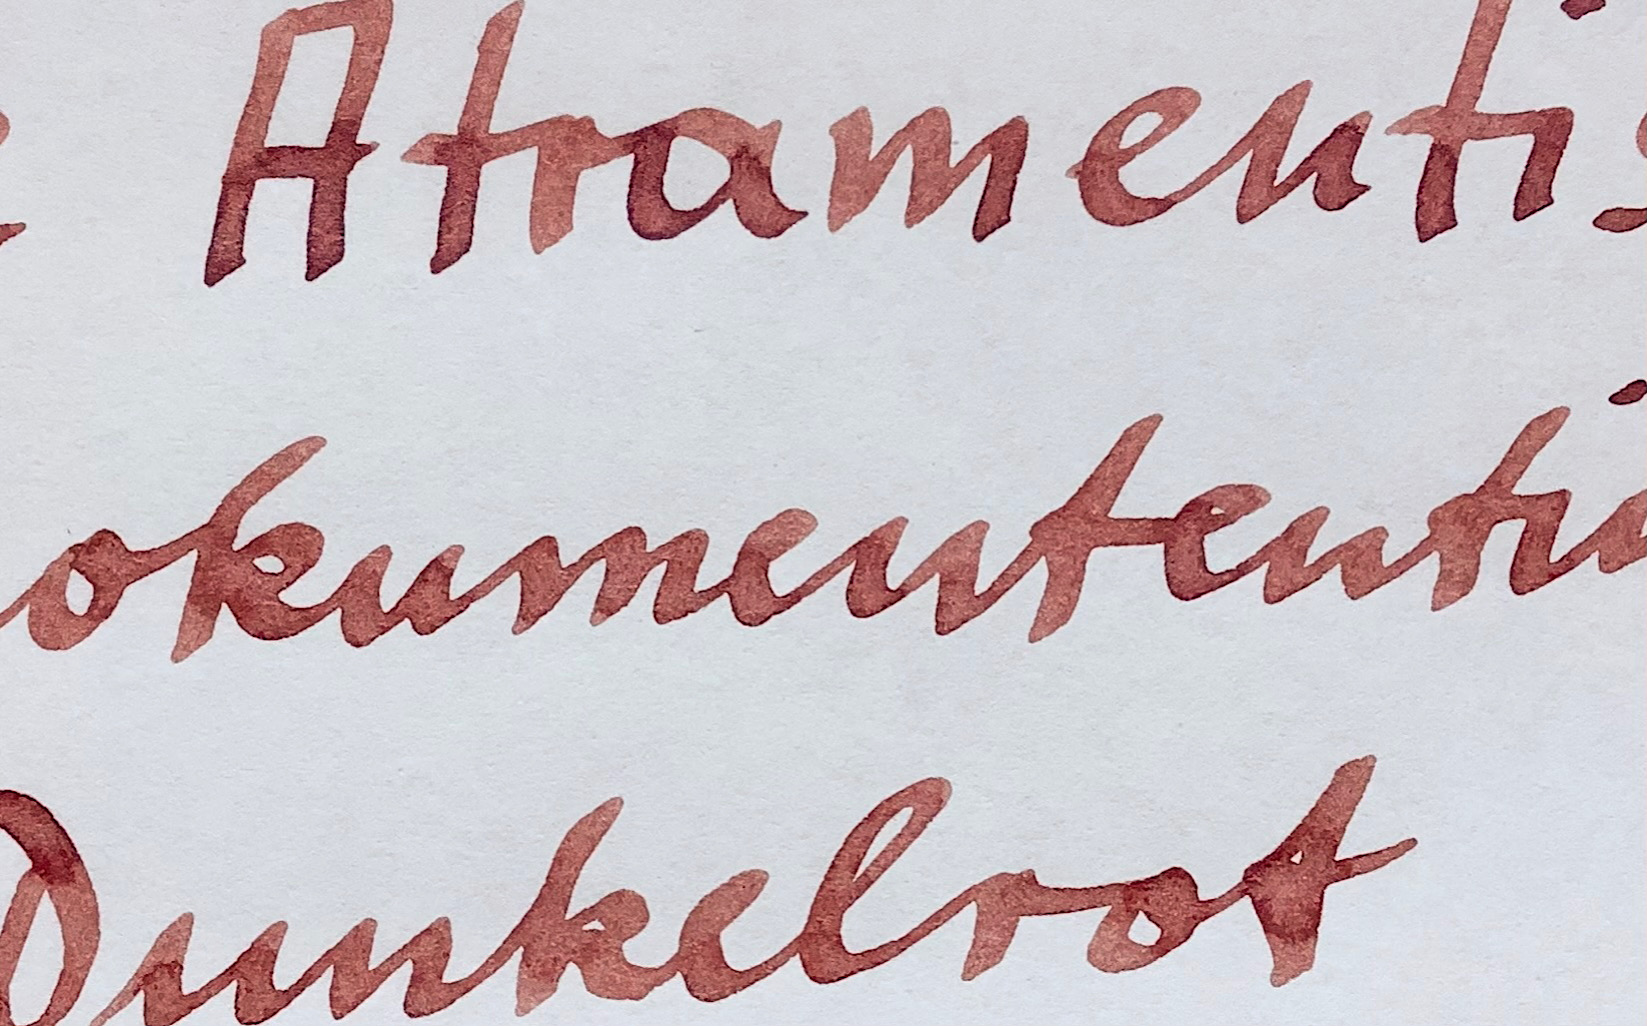 Atramentis
okumententin
Dunkelrot